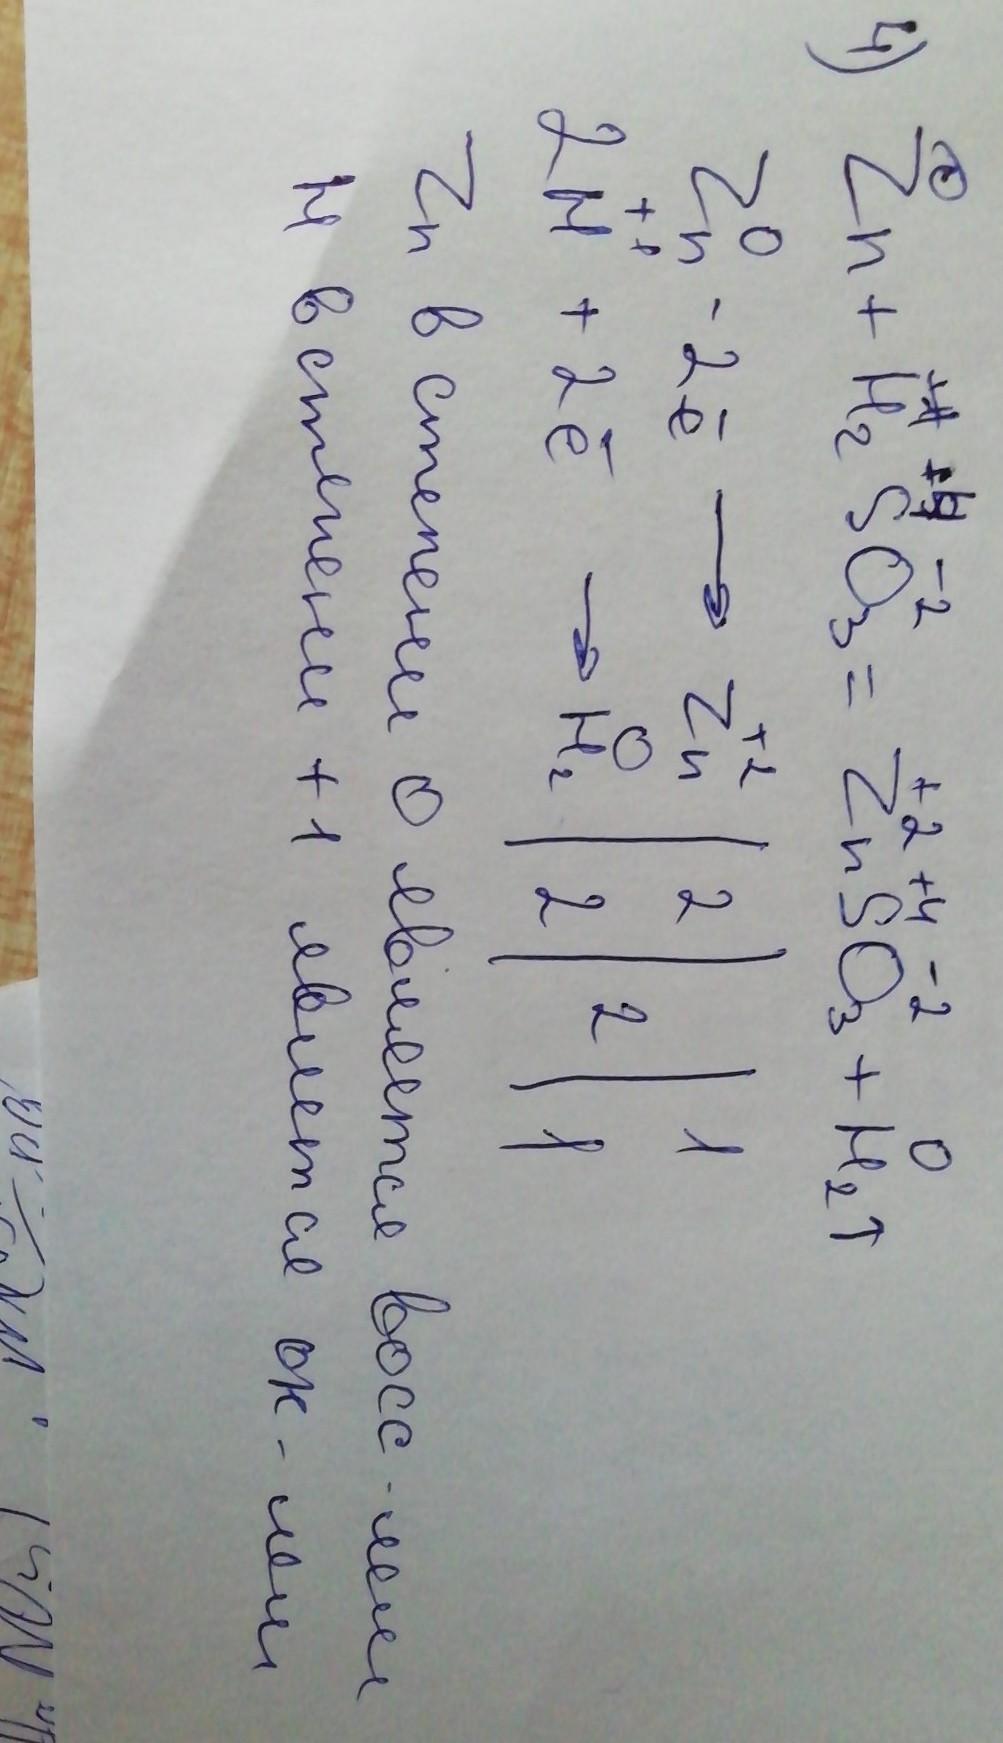 4) Zn⁰ + H₂⁺¹S⁺⁴O₃⁻² = Zn⁺²S⁺⁴O₃⁻² + H₂⁰↑
Zn⁰ - 2ē → Zn⁺² | 2 | | 1
2H⁺¹ + 2ē → H₂⁰ | 2 | 2 | 1
Zn в степени 0 является восс-лем
H в степени +1 является ок-лем